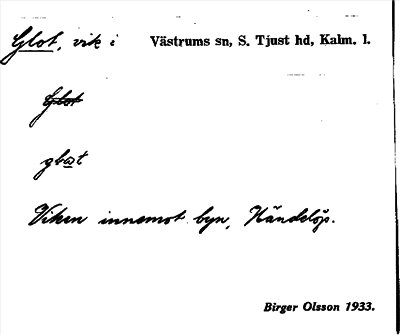 Glot, vik i Västrums sn, S. Tjust hd, Kalm. l.
Glot
Viken innemot byn, Händelöp.
Birger Olsson 1933.